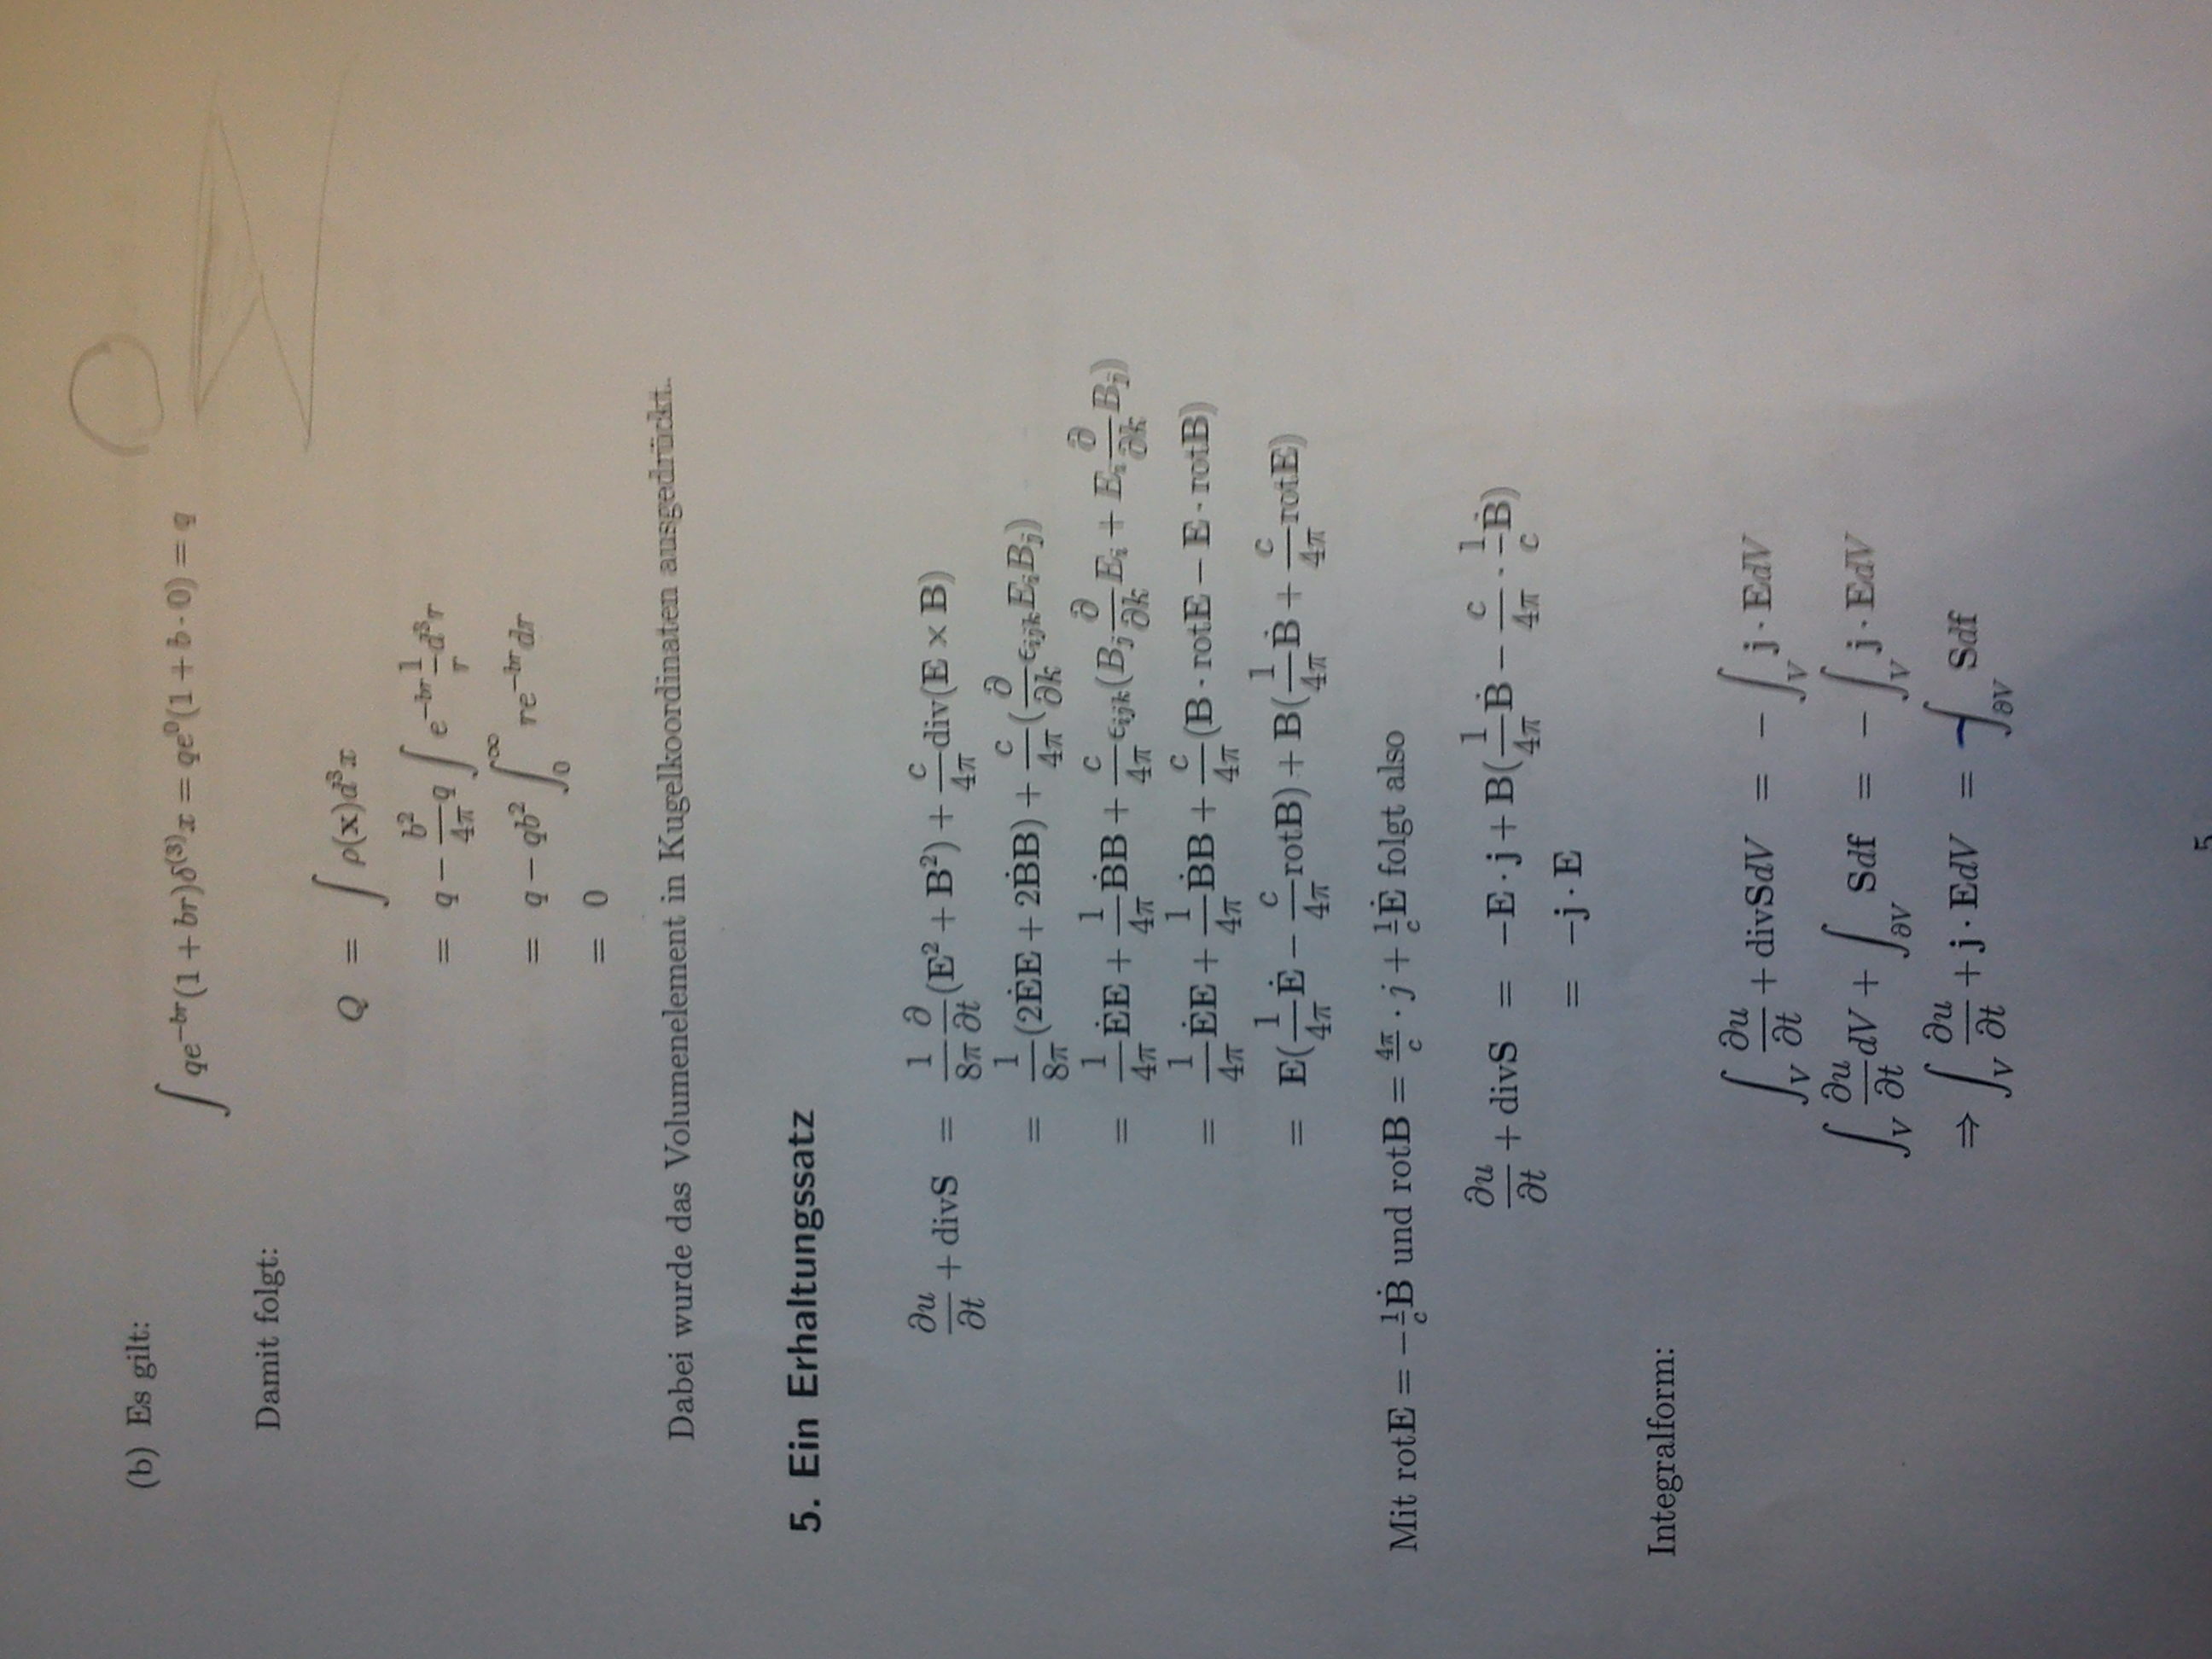 (b) Es gilt:
∫ qe^{−br}(1 + br)δ^{(3)}x = qe^0(1 + b · 0) = q
Damit folgt:
Q = ∫ ρ(𝐱)d³x
= q − b²/4π q ∫ e^{−br} 1/r d³r
= q − qb² ∫_0^∞ re^{−br}dr
= 0
Dabei wurde das Volumenelement in Kugelkoordinaten ausgedrückt.
5. Ein Erhaltungssatz
∂u/∂t + divS = 1/8π ∂/∂t (E² + B²) + c/4π div(E × B)
= 1/8π (2ĖE + 2ḂB) + c/4π (∂/∂k ϵ_{ijk}E_iB_j)
= 1/4π ĖE + 1/4π ḂB + c/4π ϵ_{ijk}(B_j ∂/∂k E_i + E_i ∂/∂k B_j)
= 1/4π ĖE + 1/4π ḂB + c/4π (B · rotE − E · rotB)
= E(1/4π Ė − c/4π rotB) + B(1/4π Ḃ + c/4π rotE)
Mit rotE = −1/c Ḃ und rotB = 4π/c · j + 1/c Ė folgt also
∂u/∂t + divS = −E · j + B(1/4π Ḃ − c/4π · 1/c Ḃ)
= −j · E
Integralform:
∫_V ∂u/∂t + divSdV = − ∫_V j · EdV
∫_V ∂u/∂t dV + ∫_{∂V} Sdf = − ∫_V j · EdV
⇒ ∫_V ∂u/∂t + j · EdV = − ∫_{∂V} Sdf
5